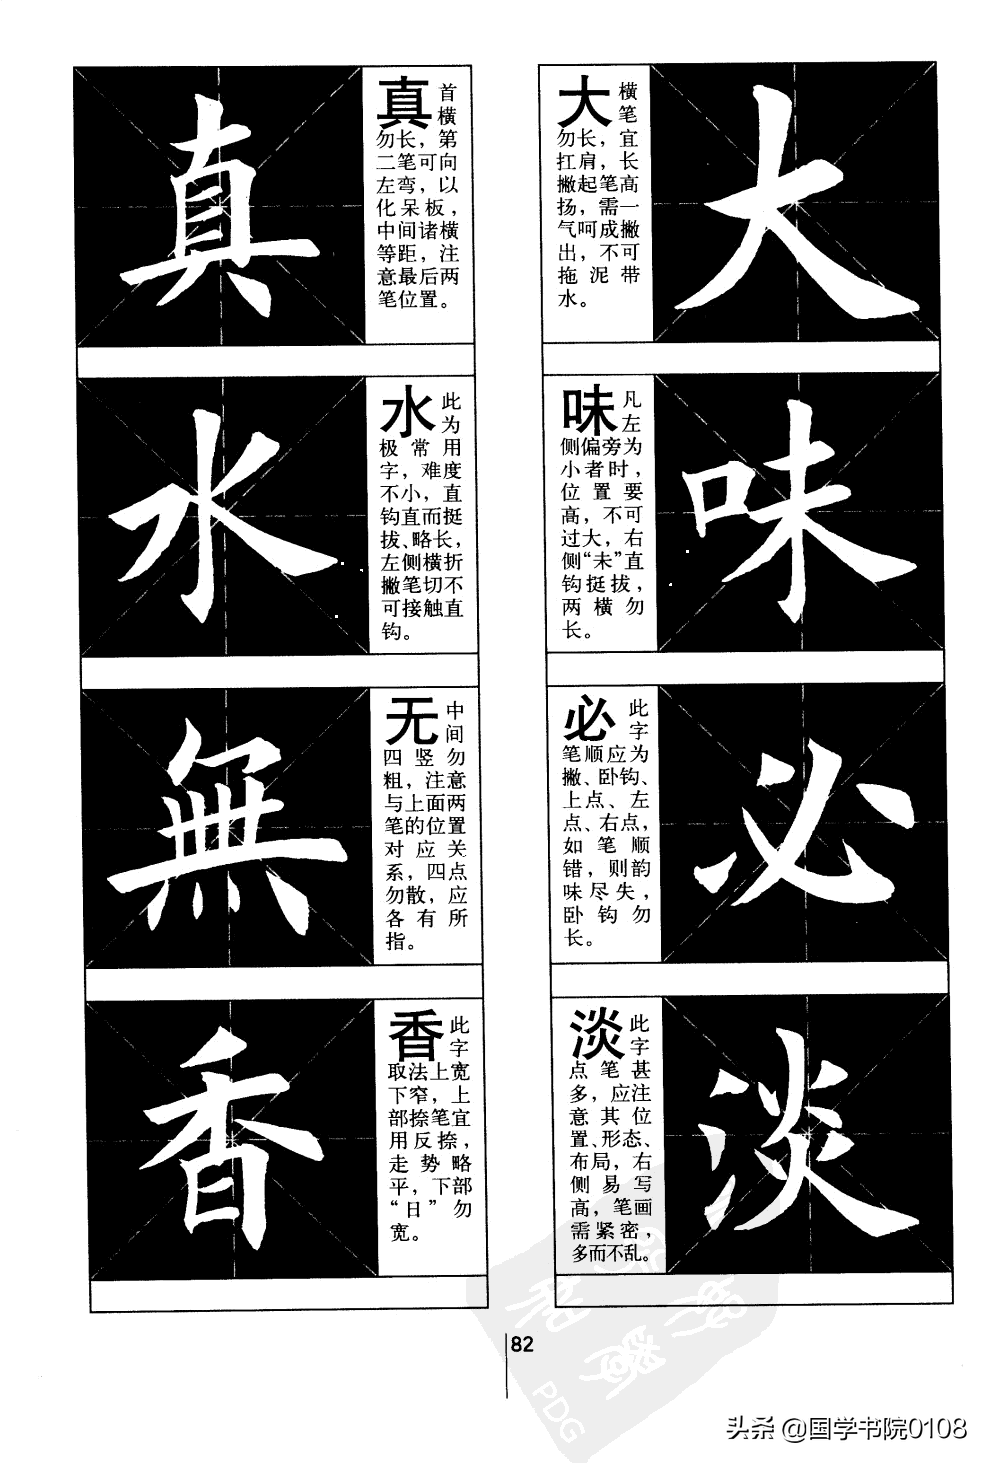 真
真 首横
勿长，第
二笔可向
左弯，以
化呆板，
中间诸横
等距，注
意最后两
笔位置。
水
水 此为
极常用
字，难度
不小，直
钩直而挺
拔、略长，
左侧横折
撇笔切不
可接触直
钩。
無
无 中间
四竖勿
粗，注意
与上面两
笔的位置
对应关
系，四点
勿散，应
各有所
指。
香
香 此字
取法上宽
下窄，上
部捺笔宜
用反捺，
走势略
平，下部
“日”勿
宽。
大 横笔
勿长，宜
扛肩，长
撇起笔高
扬，需一
气呵成撇
出，不可
拖泥带
水。
大
味 凡左
侧偏旁为
小者时，
位置要
高，不可
过大，右
侧“未”直
钩挺拔，
两横勿
长。
味
必 此字
笔顺应为
撇、卧钩、
上点、左
点、右点，
如笔顺
错，则韵
味尽失，
卧钩勿
长。
必
淡 此字
点笔甚
多，应注
意其位
置、形态、
布局，右
侧易写
高，笔画
需紧密，
多而不乱。
淡
82
PDG
头条 @国学书院0108